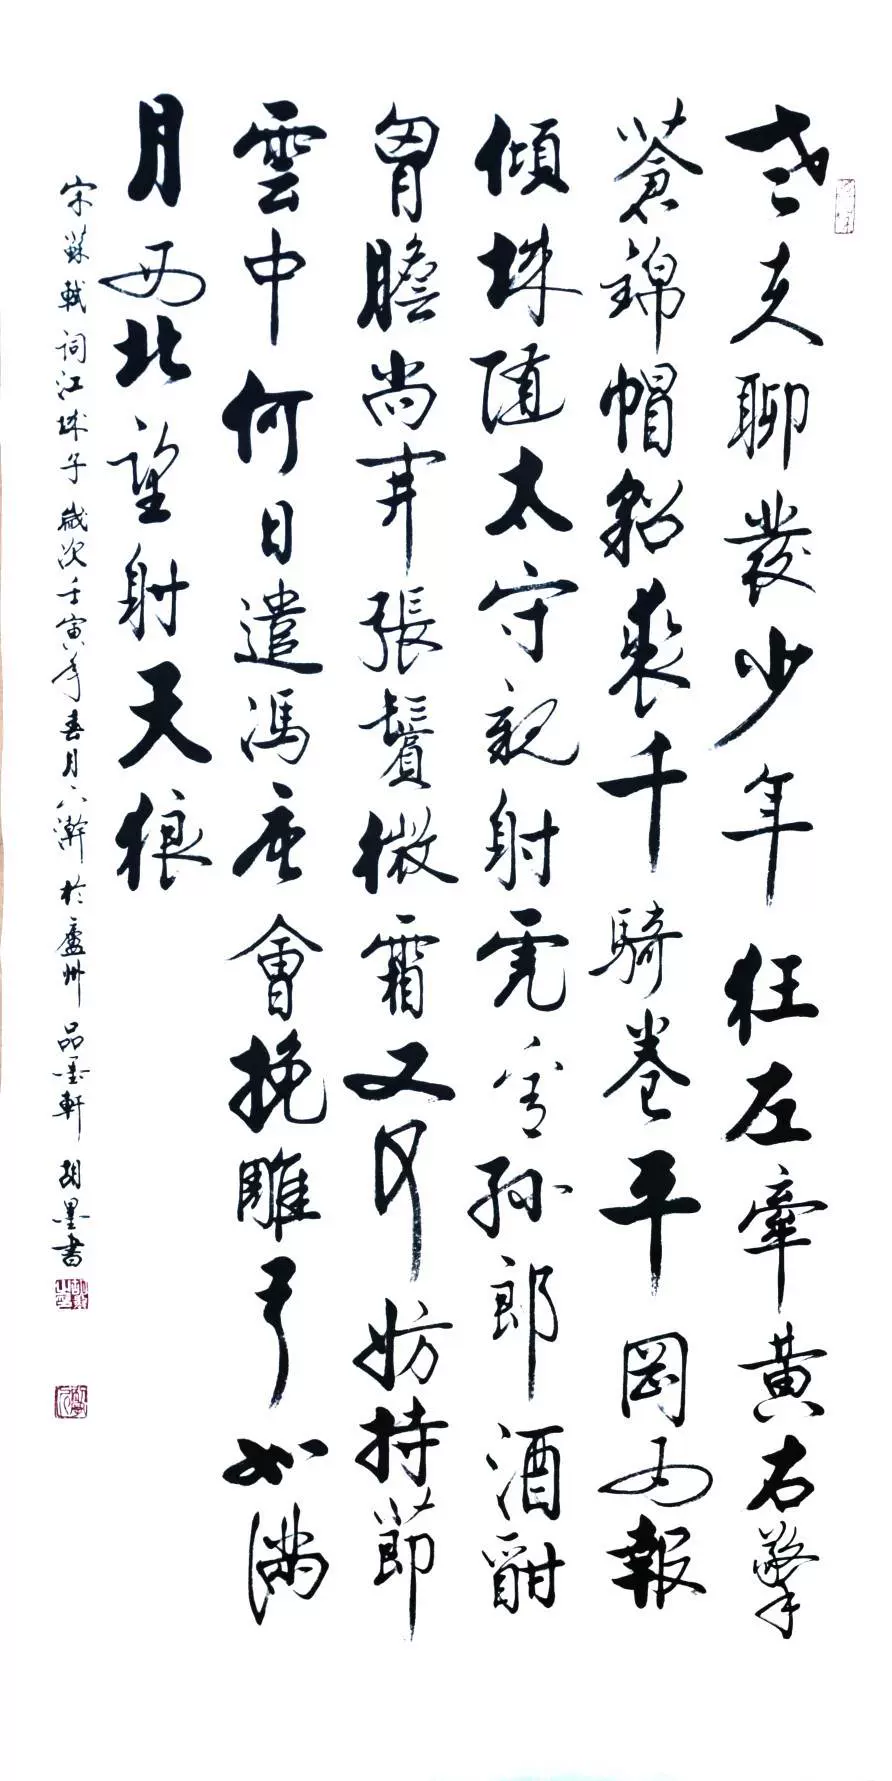 老夫聊發少年狂左牽黃右擎
蒼錦帽貂裘千騎卷平岡為報
傾城隨太守親射虎看孫郎酒酣
胷膽尚開張鬢微霜又何妨持節
雲中何日遣馮唐會挽雕弓如滿
月西北望射天狼
宋蘇軾詞江城子歲次壬寅年春月下澣於廬州品墨軒胡墨書